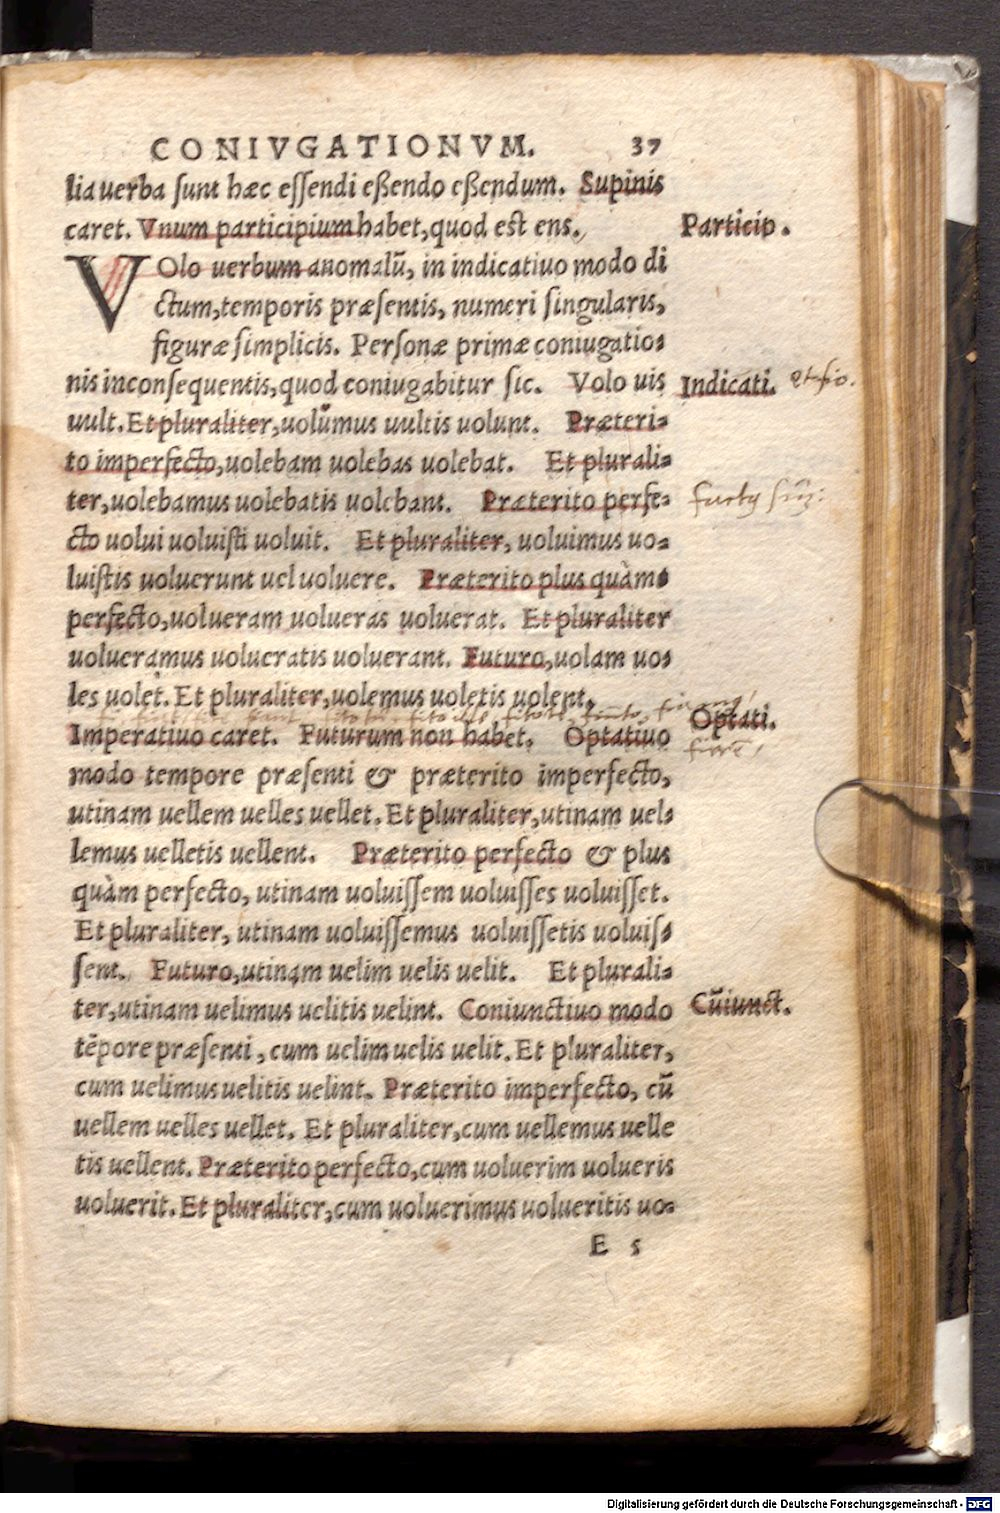 CONIVGATIONVM. 37
lia uerba ſunt hæc eſſendi eßendo eßendum. Supinis
caret. Vnum participium habet, quod est ens. Particip.
VOlo uerbum anomalũ, in indicatiuo modo di
ctum, temporis præſentis, numeri ſingularis,
figuræ ſimplicis. Perſonæ primæ coniugatio=
nis inconſequentis, quod coniugabitur ſic. Volo uis Indicati.
uult. Et pluraliter, uolumus uultis uolunt. Præteri=
to imperfecto, uolebam uolebas uolebat. Et plurali=
ter, uolebamus uolebatis uolebant. Præterito perfe=
cto uolui uoluiſti uoluit. Et pluraliter, uoluimus uo=
luiſtis uoluerunt uel uoluere. Præterito plus quàm=
perfecto, uolueram uolueras uoluerat. Et pluraliter
uolueramus uolueratis uoluerant. Futuro, uolam uo=
les uolet. Et pluraliter, uolemus uoletis uolent.
Imperatiuo caret. Futurum non habet. Optatiuo Optati.
modo tempore præſenti & præterito imperfecto,
utinam uellem uelles uellet. Et pluraliter, utinam uel=
lemus uelletis uellent. Præterito perfecto & plus
quàm perfecto, utinam uoluiſſem uoluiſſes uoluiſſet.
Et pluraliter, utinam uoluiſſemus uoluiſſetis uoluiſ=
ſent. Futuro, utinam uelim uelis uelit. Et plurali=
ter, utinam uelimus uelitis uelint. Coniunctiuo modo Cũiunct.
tẽpore præſenti, cum uelim uelis uelit. Et pluraliter,
cum uelimus uelitis uelint. Præterito imperfecto, cũ
uellem uelles uellet. Et pluraliter, cum uellemus uelle
tis uellent. Præterito perfecto, cum uoluerim uolueris
uoluerit. Et pluraliter, cum uoluerimus uolueritis uo=
E 5
Digitalisierung gefördert durch die Deutsche Forschungsgemeinschaft - DFG